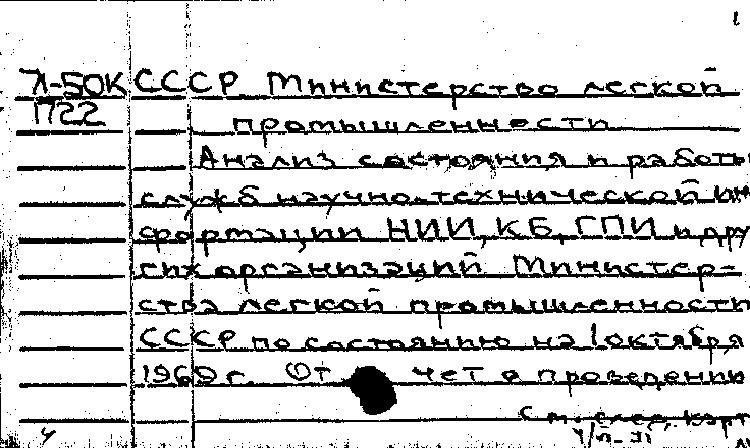 Л-50К СССР. Министерство легкой
1722 промышленности
Анализ состояния и работы
служб научно-технической ин
формации НИИ, КБ, ГПИ и дру
гих организаций Министер-
ства легкой промышленности
СССР по состоянию на 1 октября
1969 г. Отчет о проведении
см. след. карт